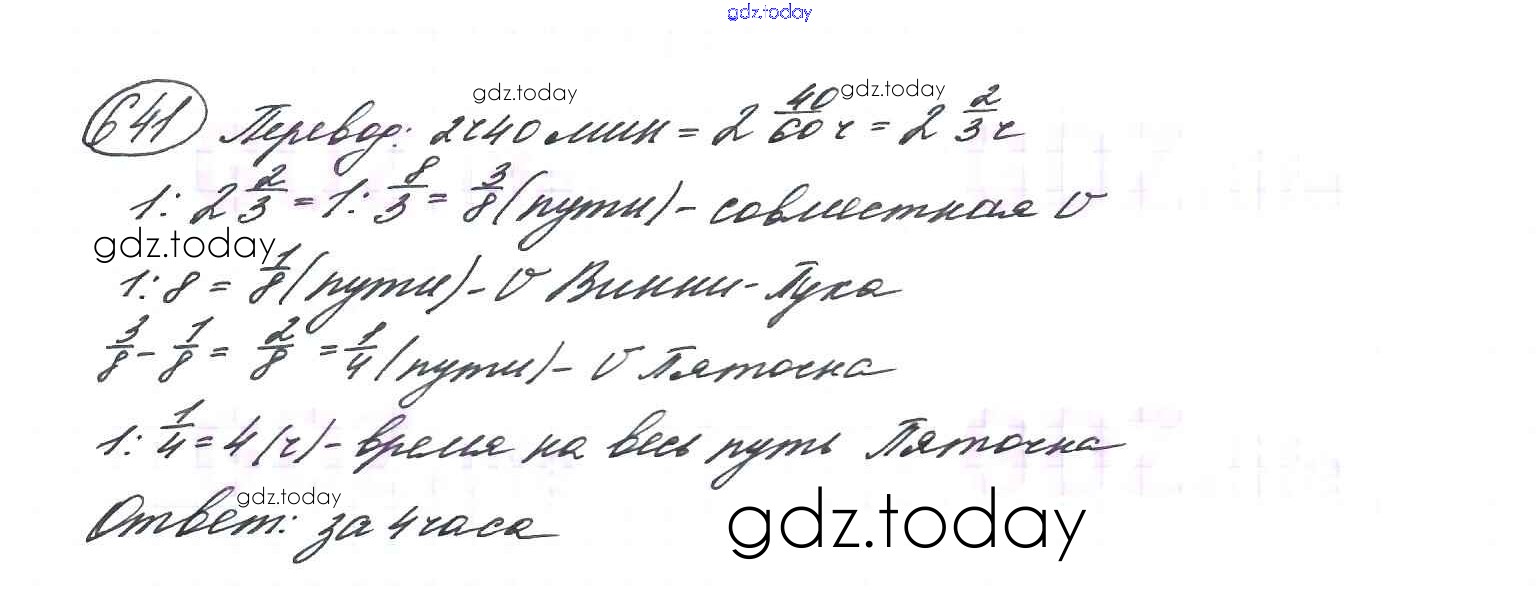 gdz.today
gdz.today gdz.today
641 Перевод: 2ч40мин = 2 40/60 ч = 2 2/3 ч
1 : 2 2/3 = 1 : 8/3 = 3/8 (пути) - совместная v
gdz.today
1 : 8 = 1/8 (пути) - v Винни-Пуха
3/8 - 1/8 = 2/8 = 1/4 (пути) - v Пяточка
1 : 1/4 = 4 (ч) - время на весь путь Пяточка
gdz.today
Ответ: за 4 часа
gdz.today